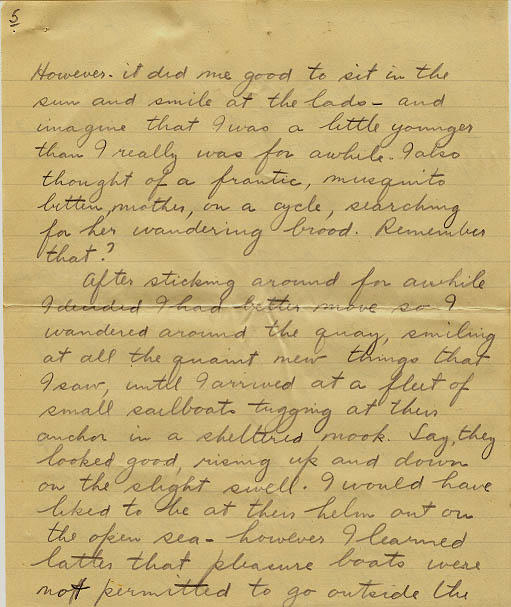 5
However - it did me good to sit in the
sun and smile at the lads - and
imagine that I was a little younger
than I really was for awhile. I also
thought of a frantic, musquito
bitten, mother, on a cycle, searching
for her wandering brood. Remember
that?
After sticking around for awhile
I decided I had better move so I
wandered around the quay, smiling
at all the quaint new things that
I saw, until I arrived at a fleet of
small sailboats tugging at their
anchor in a sheltered nook. Say, they
looked good, rising up and down
on the slight swell. I would have
liked to be at their helm out on
the open sea - however I learned
latter that pleasure boats were
not permitted to go outside the